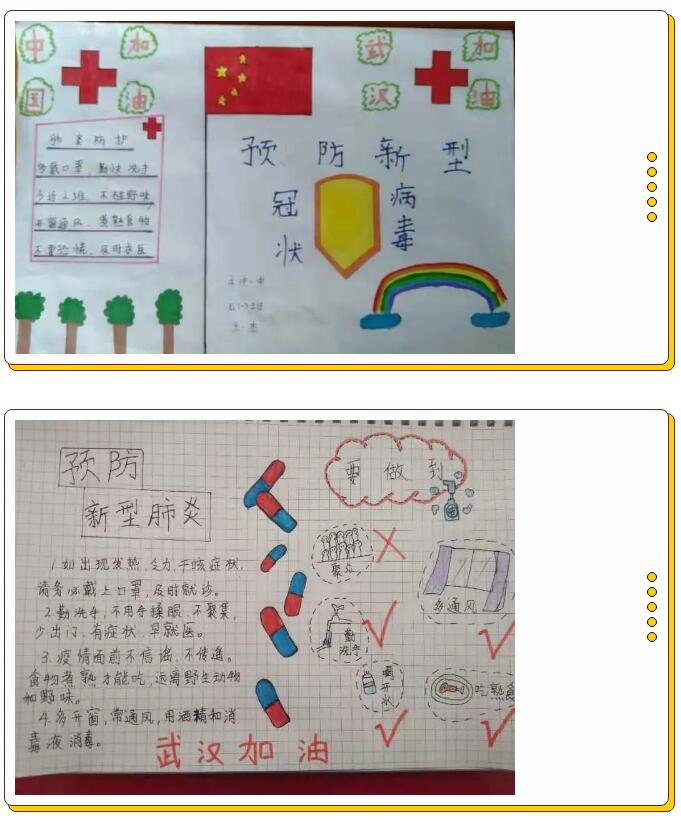 中 加
国 油
武 加
汉 油
类防护
多戴口罩、勤快洗手
不碰野味
开窗通风、煮熟食物
不要恐慌、及时求医
预防新型
冠病
状毒
预防
新型肺炎
1.如出现发热、乏力、干咳症状,
请务必戴上口罩,及时就诊。
2.勤洗手,不用手揉眼、不聚集,
少出门,有症状,早就医。
3.疫情面前不信谣、不传谣。
食物煮熟才能吃,远离野生动物
和野味。
4.多开窗,常通风,用酒精和消
毒液消毒。
武汉加油
要做到
聚众
多通风
勤
洗手
喝
开
水
吃熟食